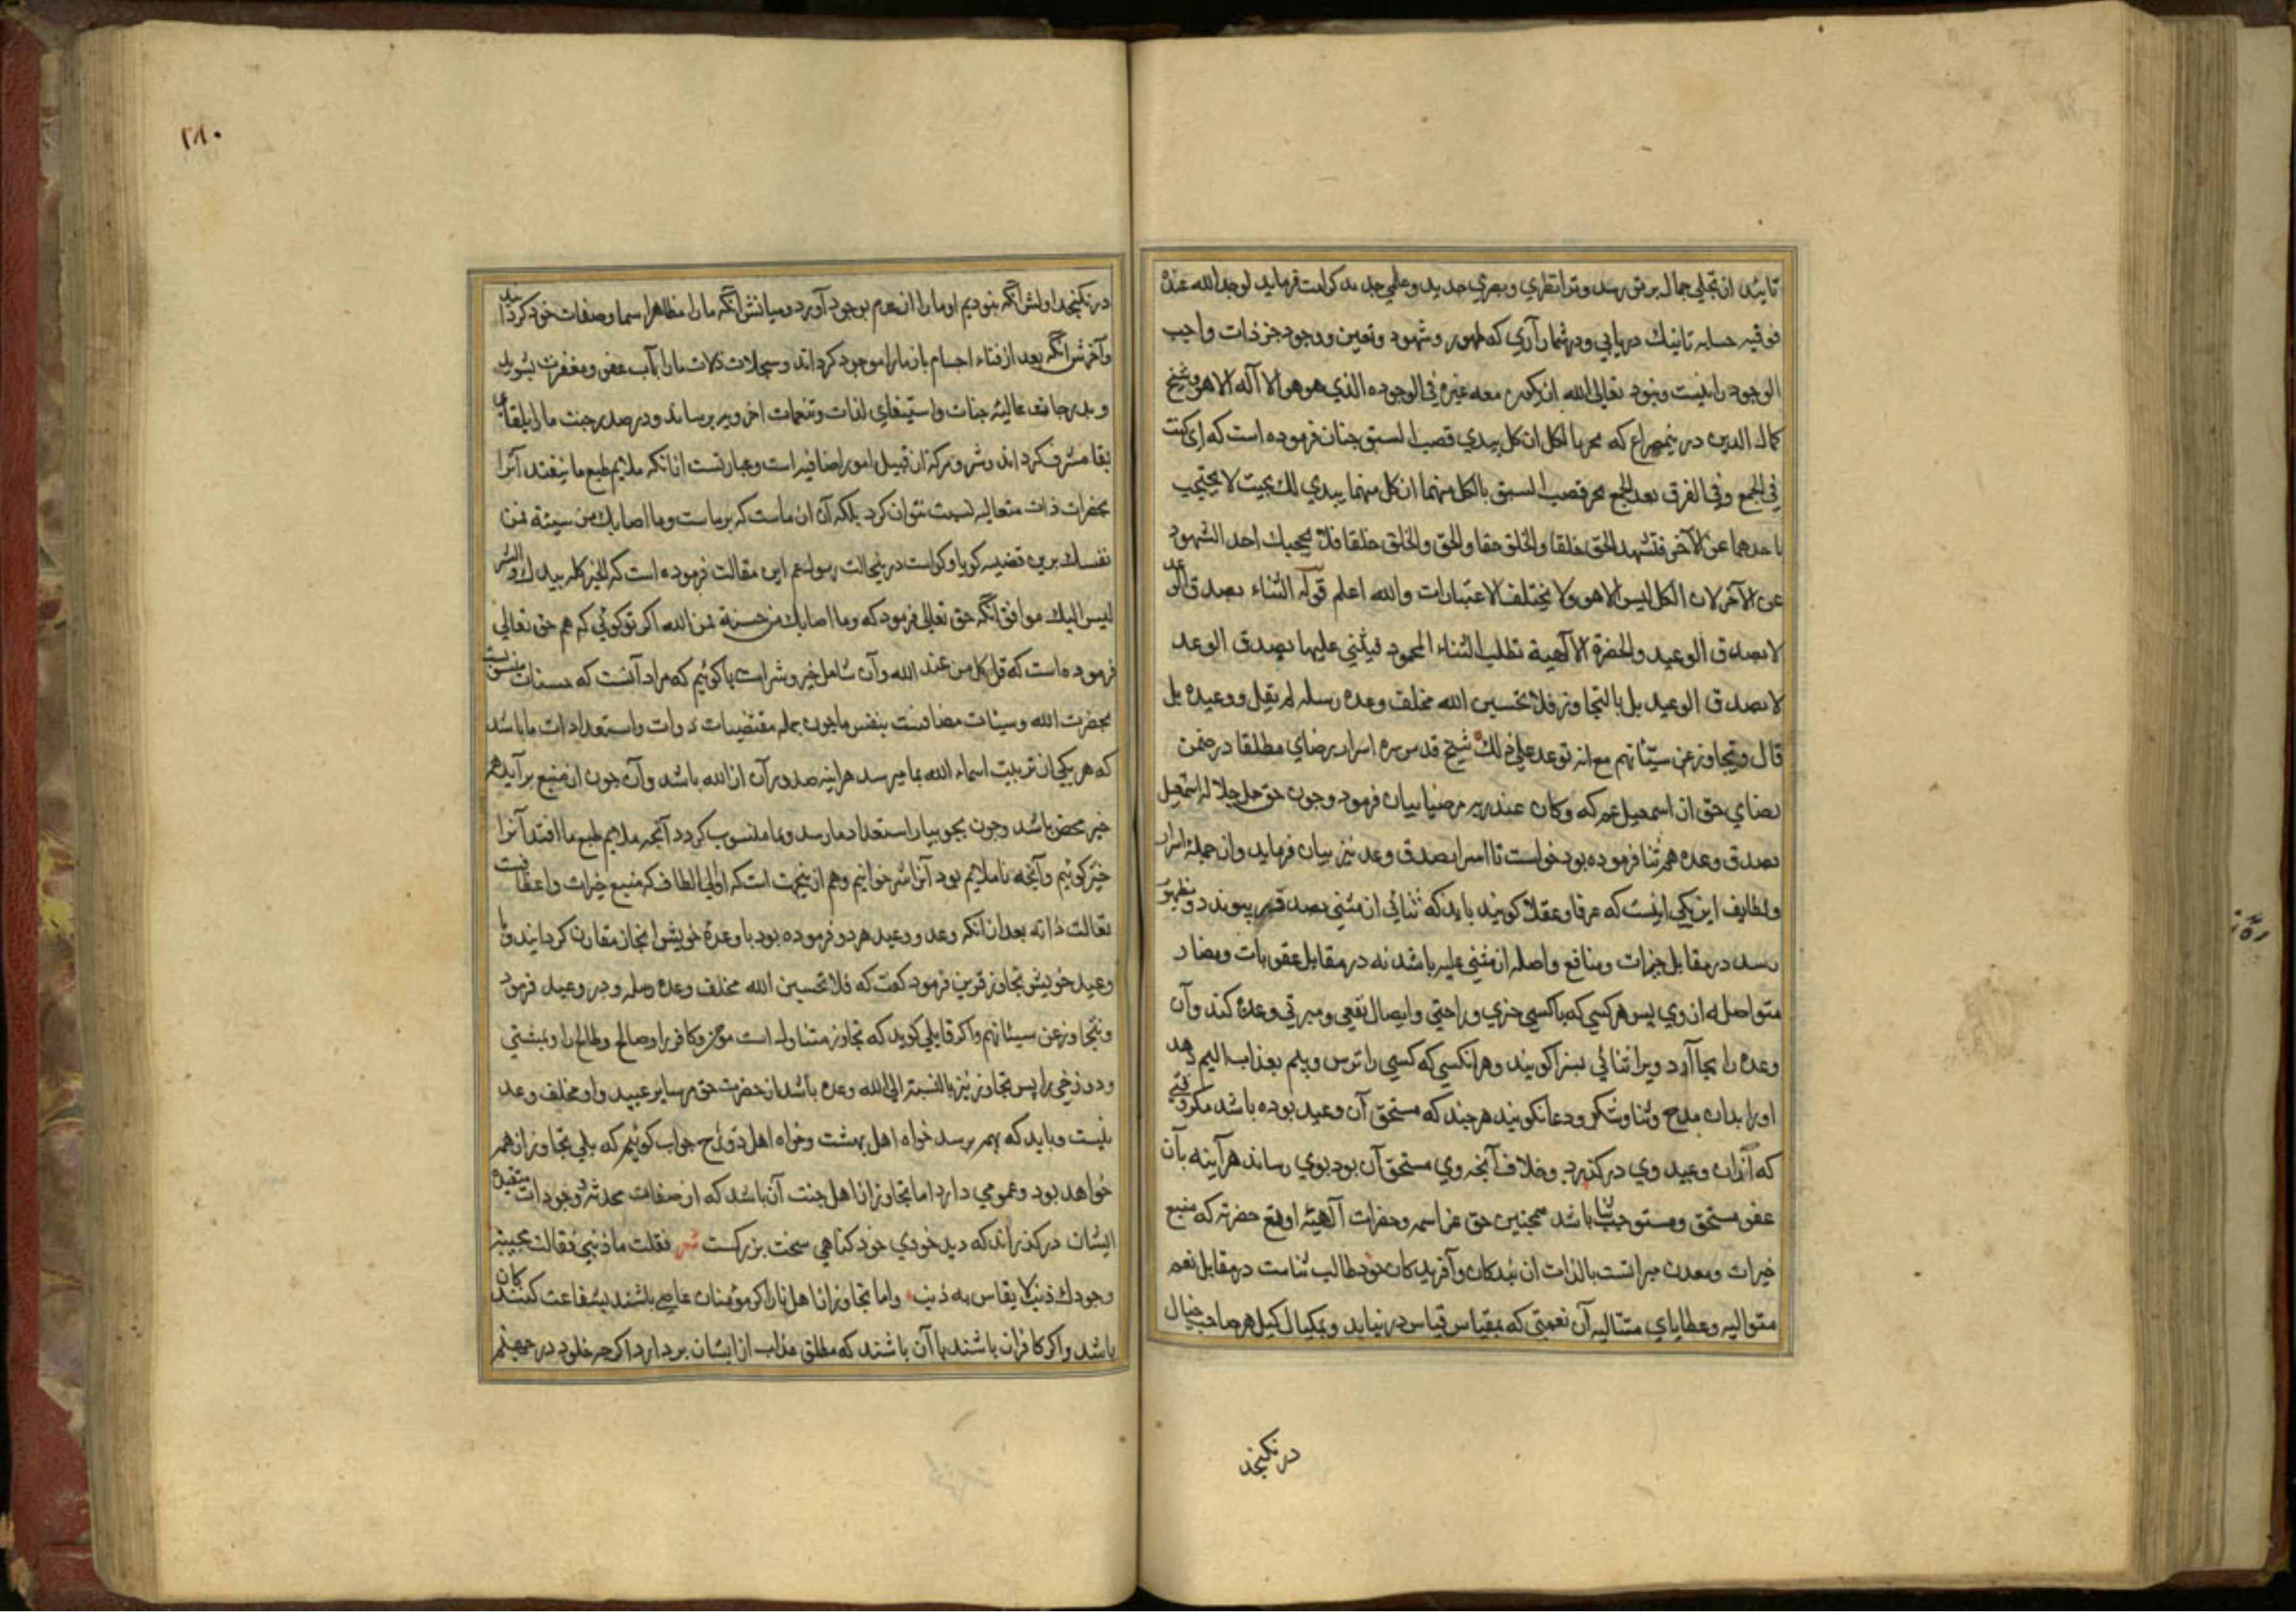 تا پرتو از تجلی جمال بر تو رسد و ترا نظری و بصری حدید و علمی جدید کرامت فرماید لوجد الله عنده
فوفیه حسابه تا نیك دریابی و در شمار آری که ظهور و شهود و تعین و وجود جز ذات واجب
الوجود را نیست و نبود تعالی الله ان یکون معه غیره فی الوجوده الذی هو هو لا آله الا هو و شیخ
کمال الدین درین مصراع که بالکل ان کل یبدی قصب السبق چنان فرموده است که ای کنت
فی الجمع و فی الفرق بعد الجمع تحز قصب السبق بالکل منهما ان کل منهما یبدی لك بحیث لا تحتجب
باحدهما عن الآخر فتشهد الحق خلقا والخلق حقا والحق والخلق خلقا فلا یحجبك احد الشهود
عن الآخر لان الکل لیس الا هو ولا یختلف الاعتبارات والله اعلم قوله الثناء بصدق الوعد
لا بصدق الوعید والحضرة الالهیة تطلب الثناء المحمود فیثنی علیها بصدق الوعد
لا بصدق الوعید بل بالتجاوز فلا تحسبن الله مخلف وعده رسله لم یقل ووعیده بل
قال ویتجاوز عن سیئاتهم مع انه توعد علی ذلك شیخ قدس سره اسرار رضای مطلقا در ضمن
رضای حق از اسمعیل عم که وکان عند ربه مرضیا بیان فرمود و چون حق جل جلاله اسمعیل
بصدق وعده هم ثنا فرموده بود خواست تا اسرار صدق وعد نیز بیان فرماید و از جمله اسرار
ولطایف این یکی اینست که عرفا و عقلا گویند باید که ثنائی از مثنی بصدق پیوندد و بظهور
رسد در مقابل خیرات و منافع واصله از مثنی علیه باشد نه در مقابل عقوبات و مضار
متواصله از وی پس هر کسی که با کسی خیری و راحتی و ایصال نفعی و مبرتی وعده کند و آن
وعده را بجا آرد ویرا ثنائی بسزا گویند و هر انکسی که کسی را ترس و بیم بعذاب الیم دهد
او را بدان مدح و ثنا و شکر و دعا نکویند هر چند که مستحق آن وعید بوده باشد مکر وقتی
که از ان وعید وی درکذرد و خلاف آنچه وی مستحق آن بود بوی رساند هر آینه بآن
عفو مستحق و مستوجب ثنا باشد همچنین حق عز اسمه و حضرات آلهیه او مع حضرته که منبع
خیرات و معدن مبراتست بالذات از بندکان و آفریدکان خود طالب ثناست در مقابل نعم
متوالیه و عطایای متتالیه آن نعمتی که بمقیاس قیاس در نیاید و بمکیال کیل هر صاحب خیال
در نکنجد
٢٨٠
در نکنجد اولش آنکه نبودیم او ما را از عدم بوجود آورد و میانش آنکه ما را مظاهر اسما و صفات خود کردانید
و آخرش آنکه بعد از فناء اجسام باز ما را موجود کرداند و سجلات ذلات ما را بآب عفو و مغفرت بشوید
و بدرجات عالیه جنات و استیفای لذات و تنعمات اخرویه برساند و در صدر جنت ما را بلقای
بقا مشرف کرداند و شر و که از قبیل امور اضافیه است و عبارتست از انکه ملایم طبع ما نیفتد آنرا
بحضرات ذات متعالیه نسبت نتوان کرد بلکه آن از ماست که بر ماست وما اصابك من سیئة فمن
نفسك برین قضیه کویا و کواست در رسول عم این مقالت فرموده است که الخیر کله بیدك والشر
لیس الیك موافق آنکه حق تعالی فرمود که وما اصابك من حسنة فمن الله اکر تو کوئی که هم حق تعالی
فرموده است که قل کل من عند الله و آن شامل خیر و شر است ما کوئیم که مراد آنست که حسنات منسوبست
بحضرت الله و سیئات مضافست بنفس ما چون جمله مقتضیات ذوات و استعدادات ما باشد
که هر یکی از تربیت اسماء الله بما میرسد هر اینه صدور آن از الله باشد و آن چون از منبع برآید هم
خیر محض باشد و چون بجویبار استعداد ما رسد و بما منسوب کردد آنچه ملایم طبع ما افتد آنرا
خیر کوئیم و آنچه نا ملایم بود آنرا شر خوانیم و هم از ینجهت است که اولی الطاف که منبع خیرات و اعطافست
تعالت ذاته بعد از انکه وعد و وعید هر دو فرموده بود با وعدۀ خویش انجاز مقارن کردانید و با
وعید خویش تجاوز قرین فرمود کفت که فلا تحسبن الله مخلف وعده رسله و در وعید فرمود
ونتجاوز عن سیئاتهم و اکر قایلی کوید که تجاوز متناول است مؤمن و کافر را و صالح و طالح را و بهشتی
و دوزخی را پس تجاوز نیز بالنسبة الی الله وعده باشد از حضرت حق مر سایر عبید و او مخلف وعد
نیست و باید که بهم برسد خواه اهل بهشت و خواه اهل دوزخ جواب کوئیم که بلی تجاوز از همه
خواهد بود و عمومی دارد اما تجاوز از اهل جنت آن باشد که از صفات محدثه و وجودات مقیده
ایشان درکذراند که دید خودی خود کناهی سخت بزرکست شعر فقلت ما ذنبی فقالت مجیبة
وجودك ذنب لا یقاس به ذنب و اما تجاوز از اهل نار اکر مؤمنان عاصی باشند بشفاعت کنندکان
باشد و اکر کافران باشند با آن باشند که مطلق عذاب از ایشان بر دارد اکرچه خلود در جهنم